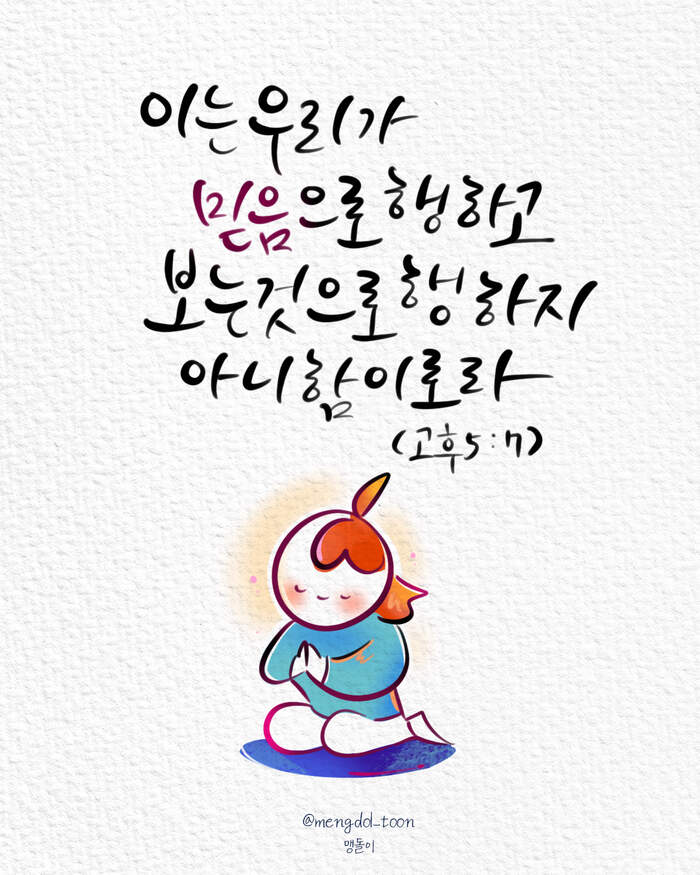 이는 우리가
믿음으로 행하고
보는것으로 행하지
아니함이로라
(고후5:7)
@mengdol_toon
맹돌이